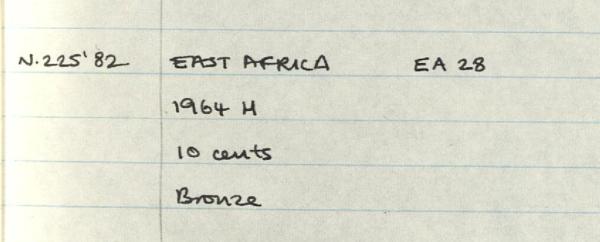 N.225'82 EAST AFRICA EA 28
1964 H
10 cents
Bronze